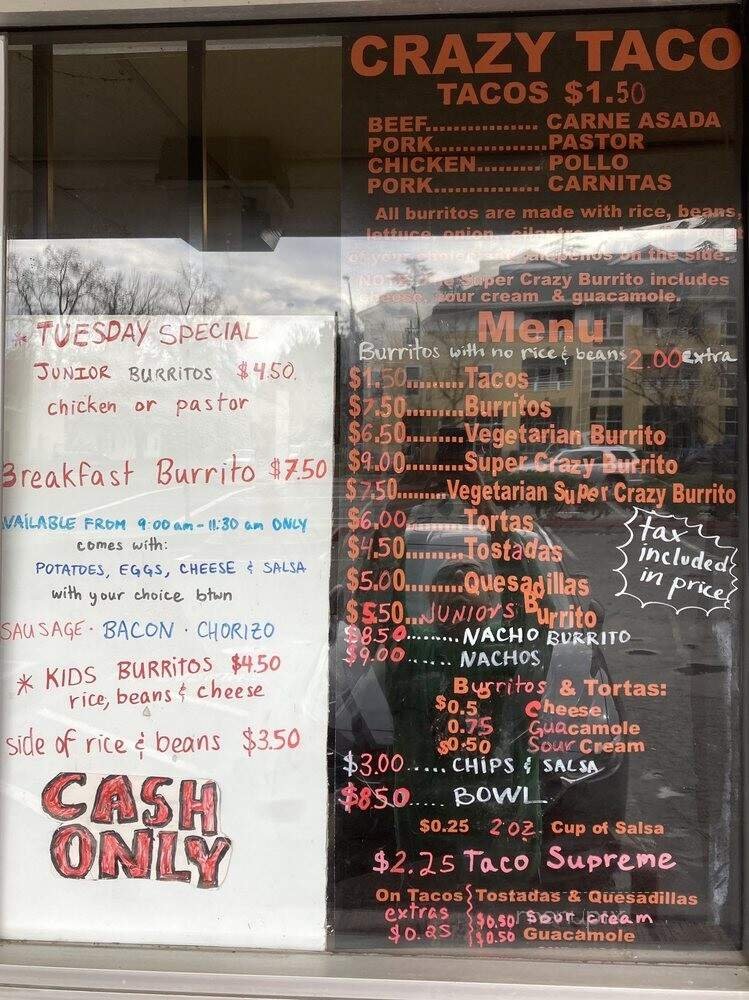 * TUESDAY SPECIAL
JUNIOR BURRITOS $4.50.
chicken or pastor
Breakfast Burrito $7.50
AVAILABLE FROM 9:00 am - 11:30 am ONLY
comes with:
POTATOES, EGGS, CHEESE & SALSA
with your choice btwn
SAUSAGE · BACON · CHORIZO
* KIDS BURRITOS $4.50
rice, beans & cheese
side of rice & beans $3.50
CASH
ONLY
CRAZY TACO
TACOS $1.50
BEEF................. CARNE ASADA
PORK.................PASTOR
CHICKEN.......... POLLO
PORK................ CARNITAS
All burritos are made with rice, beans,
lettuce, onion, cilantro
of your choice jalapeños on the side.
Super Crazy Burrito includes
cheese, sour cream & guacamole.
Menu
Burritos with no rice & beans 2.00 extra
$1.50.........Tacos
$7.50.........Burritos
$6.50.........Vegetarian Burrito
$9.00.........Super Crazy Burrito
$7.50.........Vegetarian Super Crazy Burrito
$6.00.........Tortas
$4.50.........Tostadas
$5.00.........Quesadillas
$5.50...JUNIORS Burrito
$8.50........NACHO BURRITO
$9.00......NACHOS
tax
included
in price
Burritos & Tortas:
$0.5 Cheese
0.75 Guacamole
$0.50 Sour Cream
$3.00.....CHIPS & SALSA
$8.50.....BOWL
$0.25 2 oz Cup of Salsa
$2.25 Taco Supreme
On Tacos Tostadas & Quesadillas
extras $0.50 Sour cream
$0.25 $0.50 Guacamole